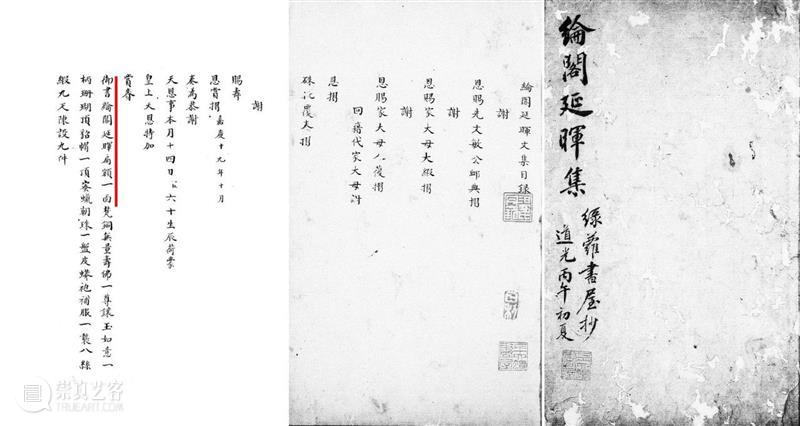 綸閣延暉集
綠蘿書屋抄
道光丙午初夏
綸閣延暉文集目錄
謝
恩賜先文敏公卹典摺
謝
恩賜家大母大緞摺
謝
恩賜家大母人葠摺
回籍代家大母謝
恩摺
硃批覆奏摺
謝
賜壽
恩賞摺 嘉慶十九年十月
奏為恭謝
天恩事本月十四日臣六十生辰荷蒙
皇上天恩特加
賞賚
御書綸閣延暉扁額一面梵銅無量壽佛一尊鑲玉如意一
柄珊瑚頂貂帽一頂蜜蠟朝珠一盤皮蟒袍補服一襲八絲
緞九天陳設九件
崇真艺客
TRUEART.COM